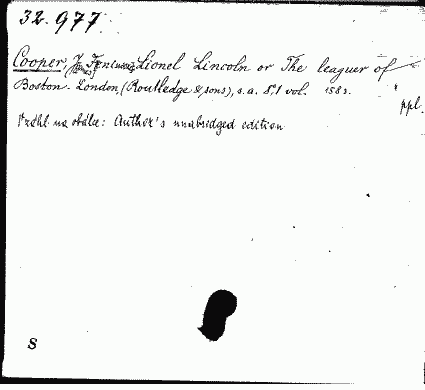 32.977
Cooper, J. Fenimore, Lionel Lincoln or The leaguer of
[James]
Boston. London, (Routledge & sons), s.a. 8°. 1 vol. 158 s.
ppl.
na obálce: Author's unabridged edition
S